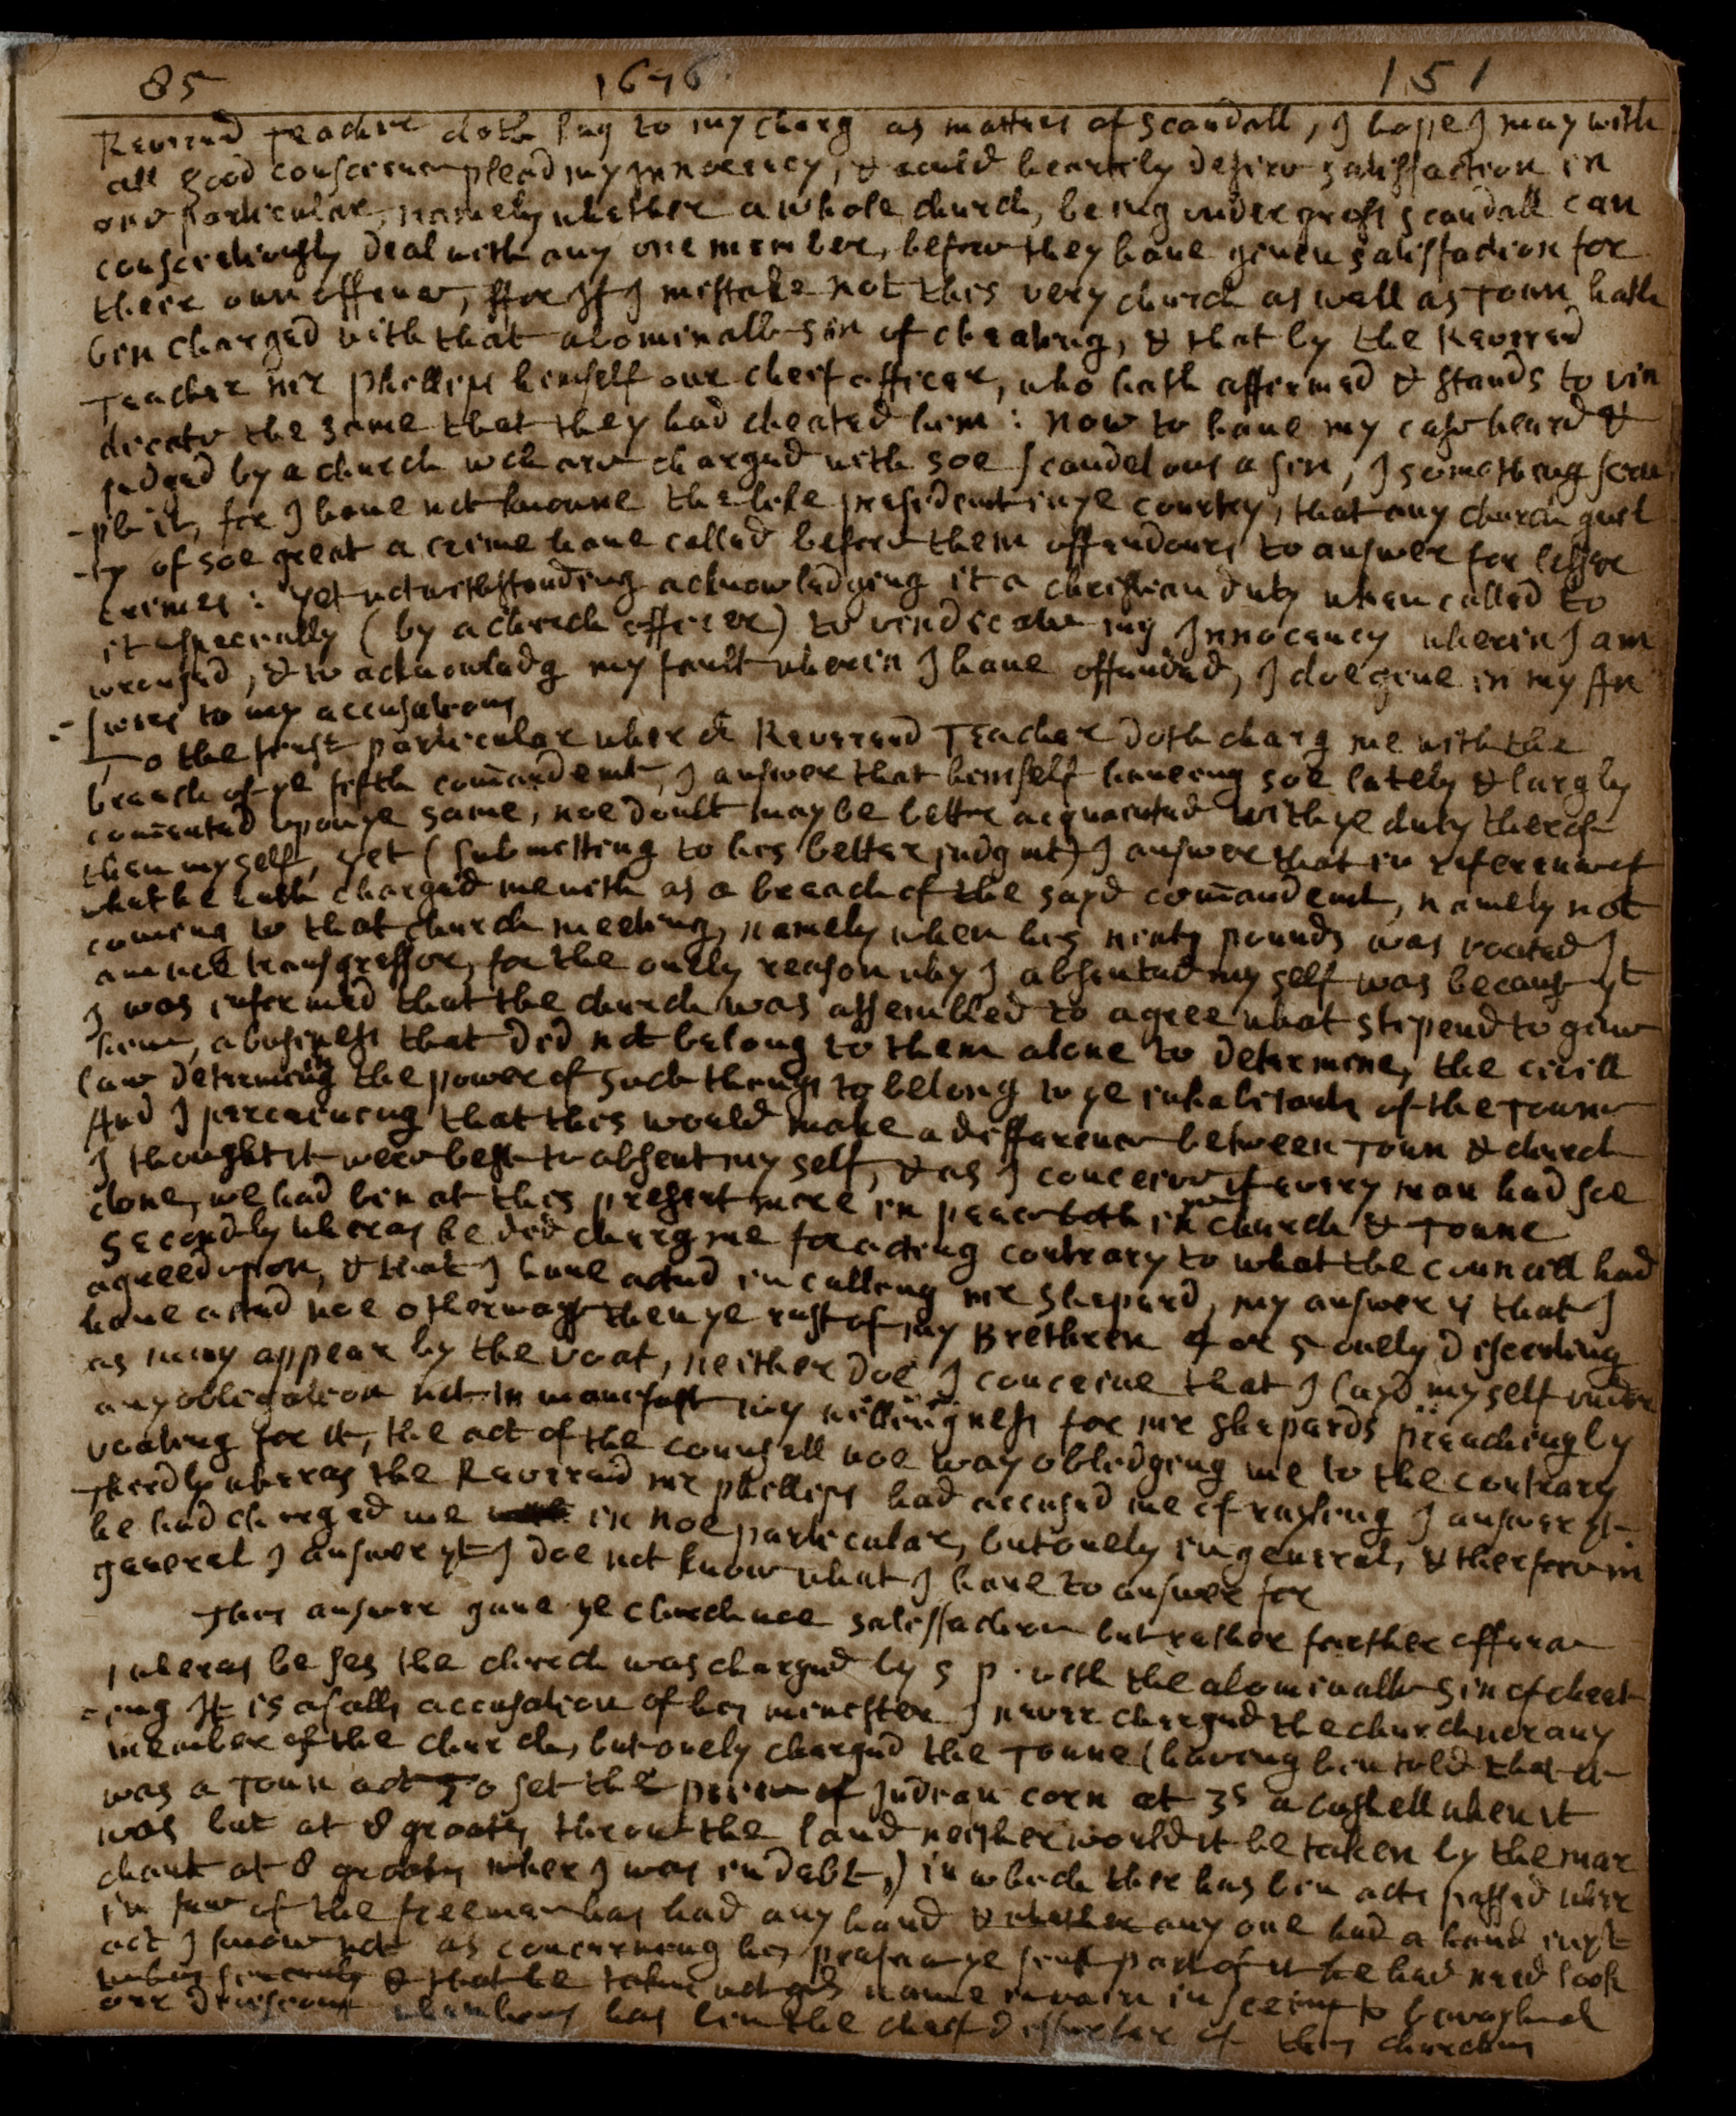 85 1676 151
Reverend Teacher doth lay to my charg as matters of scandall, I hope I may with
all good conscience plead my innocency, & could heartily desire satisfaction in
one particular, namely whether a whole church, being under gross scandall can
conscientiously deal with any one member, before they have given satisfaction for
there own offence, ffor If I mistake not this very church as well as Town hath
bin charged with that abominable sin of cheating, & that by the Reverend
Teacher mr Phillips himself our cheif officer, who hath affermed & stands to vin
dicate the same that they had cheated him: now to have my case heard &
judged by a church wch are charged with soe scandelous a sin, I something scru
-ple it, for I have not knowne the like president in ye countrey, that any church guil
-ty of soe great a crime have called before them offendours to answer for lesser
crimes: yet notwithstanding acknowledging it a christian duty when called to
it especially (by a church officer) to vindicate my Innocency wherin I am
wronged, & to acknowledg my fault wherin I have offended, I doe give in my An
-swers to my accusations
To the first particular wher ye Reverend Teacher doth charg me with the
breach of ye fifth comandemt, I answer that himself haveing soe lately & largly
comented upon ye same, noe doubt may be better acquainted with ye duty therof
then my self, yet (submitting to his better judgmt) I answer that in referenc of
what he hath charged me with as a breach of the sayd comandemt, namely not
coming to that church meeting, namely when his ninty pounds was voated I
am noe transgressor, for the onely reason why I absented my self was because yt
I was informed that the church was assembled to agree what stipend to give
him, a business that did not belong to them alone to determine, the civill
Law determining the power of such things to belong to ye inhabitants of the Towne
And I perceiveing that this would make a difference between Town & church
I thought it were best to absent my self, & as I conceive if every man had soe
done, we had bin at this present more in peace both in church & Towne
Secondly wheras he did charg me for acting contrary to what the councill had
agreed upon, & that I have acted in calling mr Shepard, my answer is that I
have acted noe otherways then ye rest of my Brethren 4 or 5 onely disenting
as may appear by the voat, neither doe I conceive that I layd my self under
any obligation not to manifest my willingness for mr Shepards preaching by
voating for it, the act of the counsell noe way obledgeing me to the contrary
Thirdly wheras the Reverend mr phillips had accused me of rayling I answer yt
he had charged me in noe particular, but onely in general, & therfore in
general I answer yt I doe not know what I have to answer for
This answer gave ye church noe satisfaction but rather further offence
1 wheras he ses the church was charged by s p. with the abominable sin of cheat
-ing It is a falls accusation of his minister I never charged the church nor any
member of the church, but onely charged the Towne (having bin told that it
was a Town act to set the price of Indian corn at 3s a bushell when it
was but at 8 groats throw the land neither would it be taken by the mar
chant at 8 groats wher I was in debt,) in which ther has bin acts passed wher
in few of the freemen has had any hand & whether any one had a hand in yt
act I know not as concerning his preface ye first part of it he had need look
& that he take not gods name in vain in
our has bin the cheif disturber of this churches